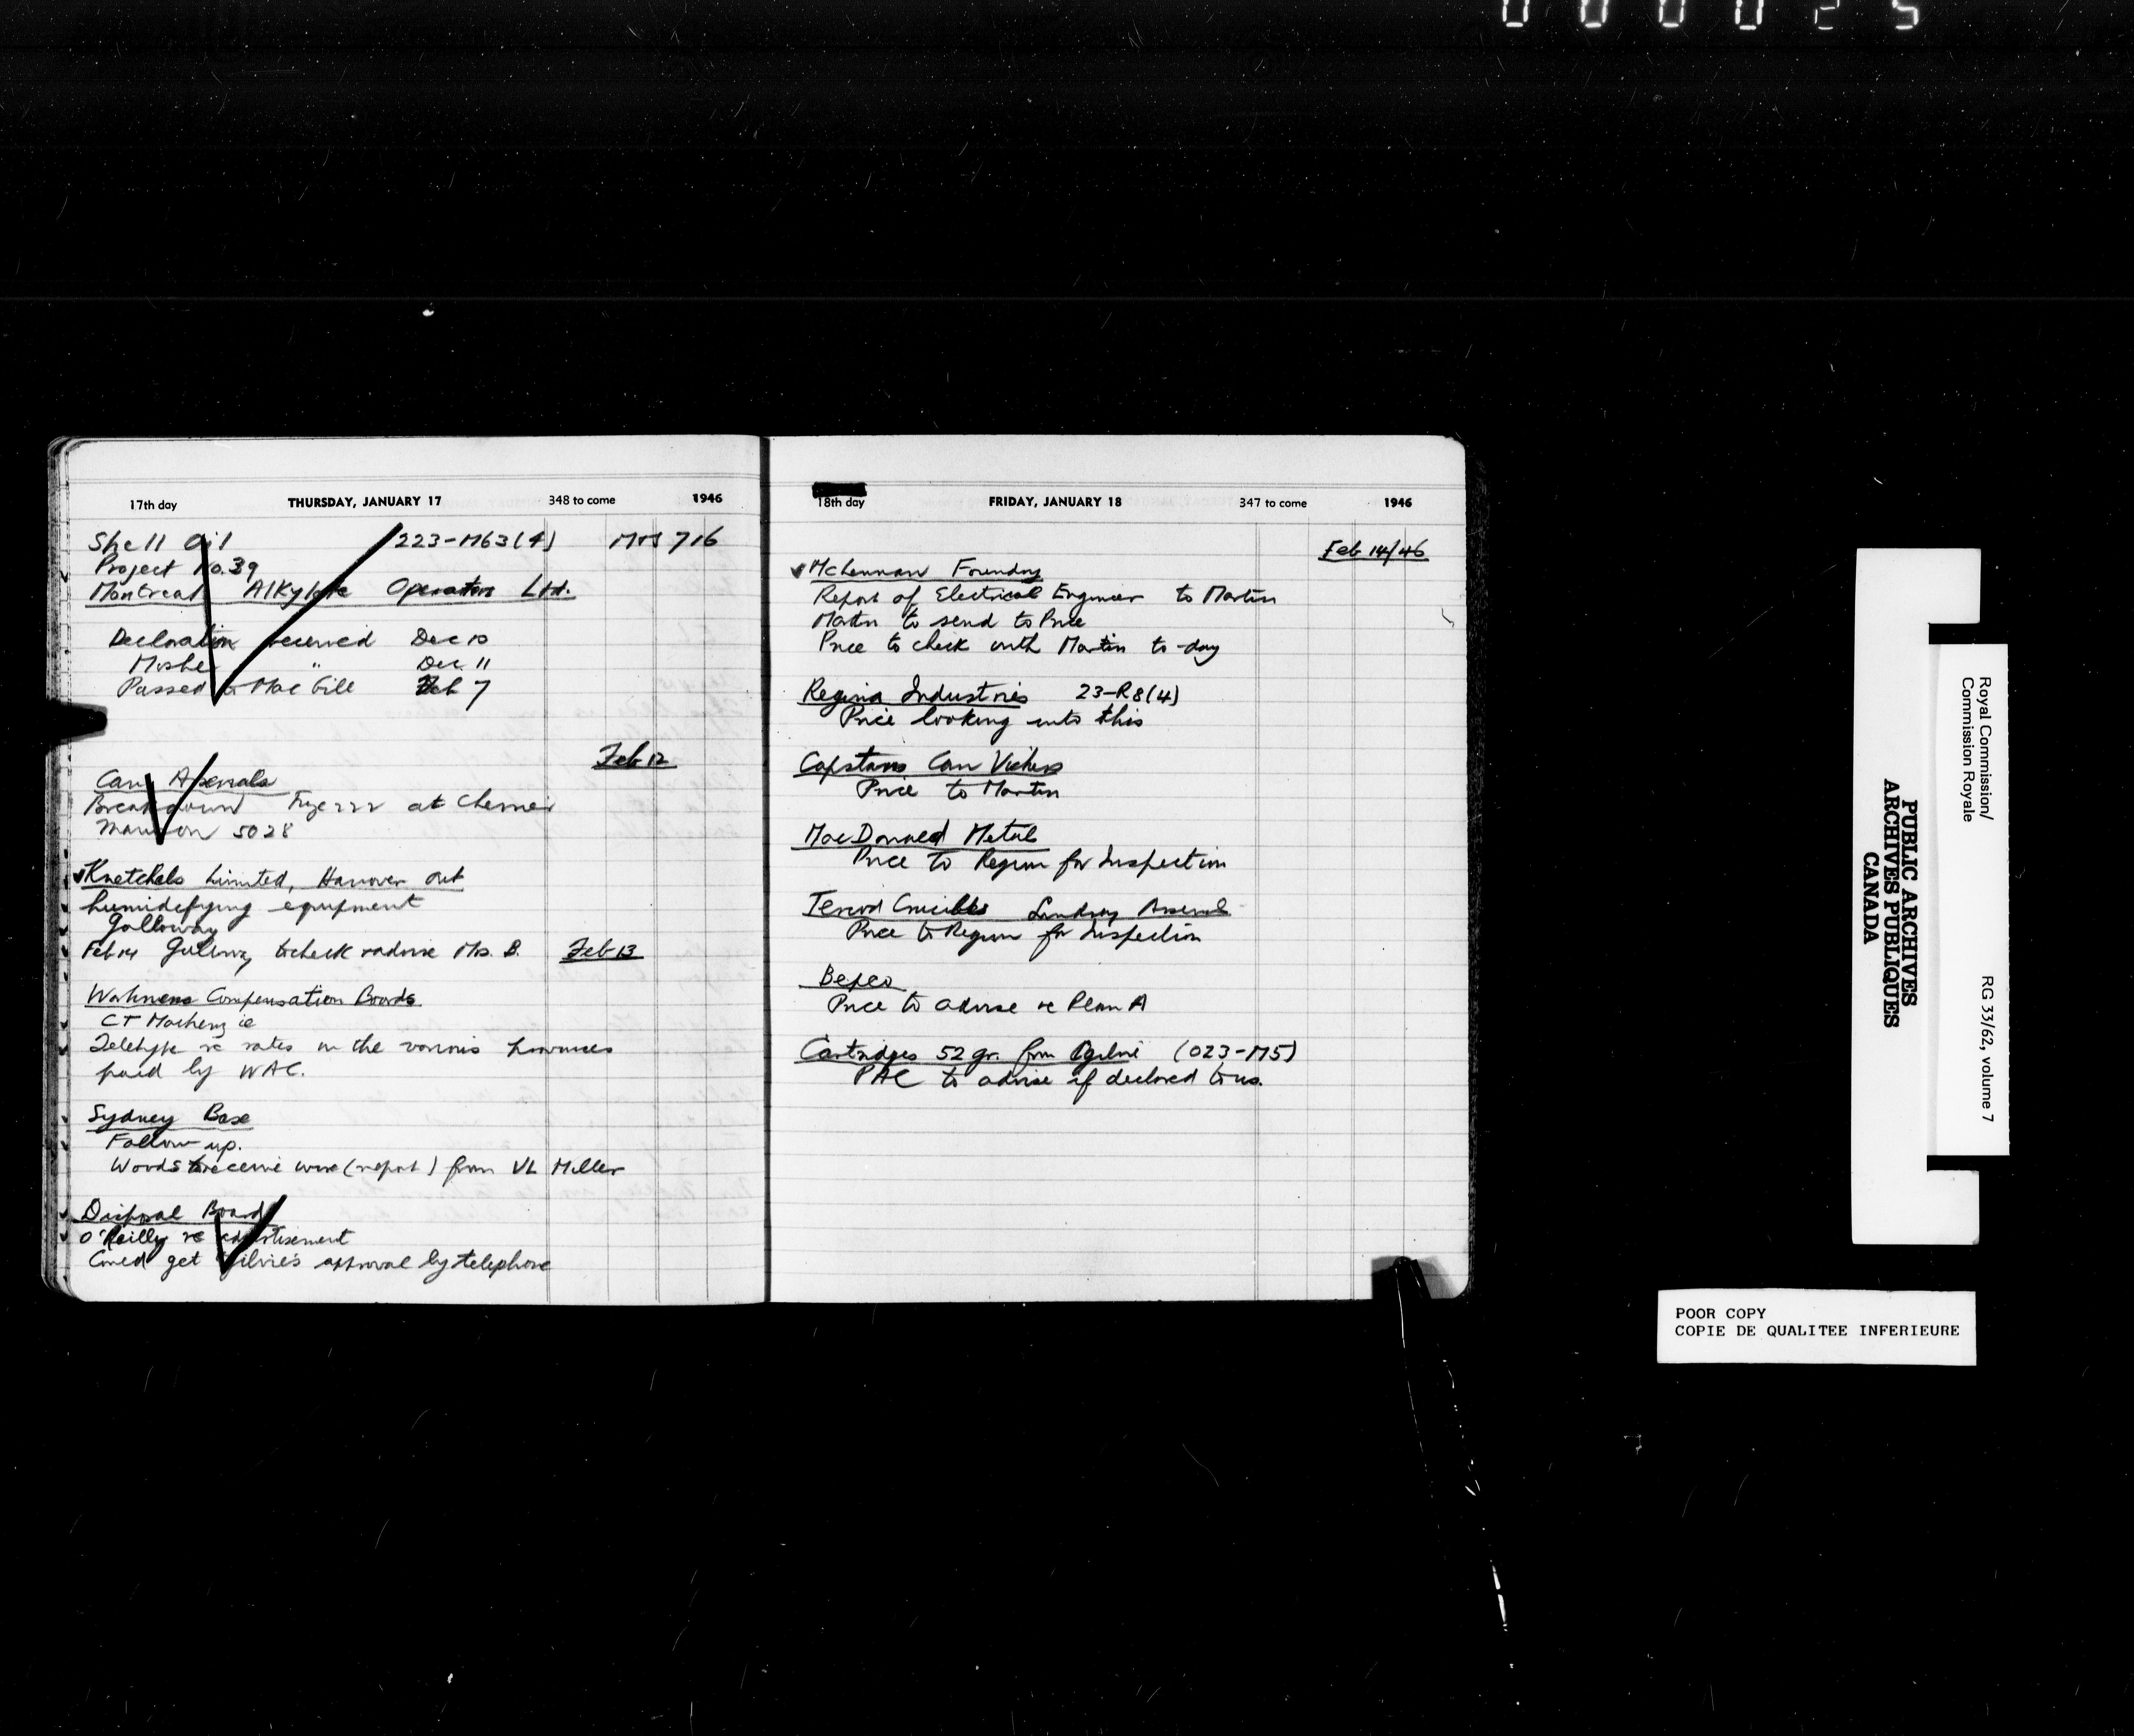 000025
17th day THURSDAY, JANUARY 17 348 to come 1946
Shell Oil 223-M63(4) 716
Project No. 39
Montreal Alkylate Operators Ltd.
Declaration received Dec 10
" Dec 11
Passed to MacGill Feb 7
Feb 12
Can Arsenals
Breakdown at
5028
Knetchels Limited, Hanover Ont
humidefying equipment
Galloway
Feb 14 to check & advise Mrs. B. Feb 13
Workmens Compensation Boards
CT Mackenzie
Teletype re rates in the various Provinces
paid by WAC.
Sydney Base
Follow up.
Woods to receive wire (report) from VL Miller
Disposal Board
O'Reilly re advertisement
Could get Ogilvie's approval by telephone
18th day FRIDAY, JANUARY 18 347 to come 1946
Feb 14/46
McLennan Foundry
Report of Electrical Engineer to Martin
Martin to send to Price
Price to check with Martin to-day
Regina Industries 23-R8(4)
Price looking into this
Capstans Can Vickers
Price to Martin
MacDonald Metal
Price to Region for Inspection
Crucibles Lindsay Arsenal
Price to Region for Inspection
Bepco
Price to advise re Plan A
Cartridges 52 gr. from Ogilvie (023-M5)
PAC to advise if declared to us.
Royal Commission/
Commission Royale
RG 33/62, volume 7
PUBLIC ARCHIVES
ARCHIVES PUBLIQUES
CANADA
POOR COPY
COPIE DE QUALITEE INFERIEURE